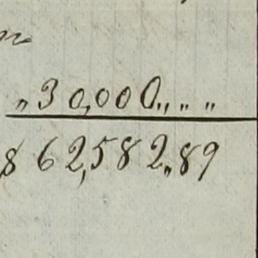 „30,000„ „ „
$62,582„89